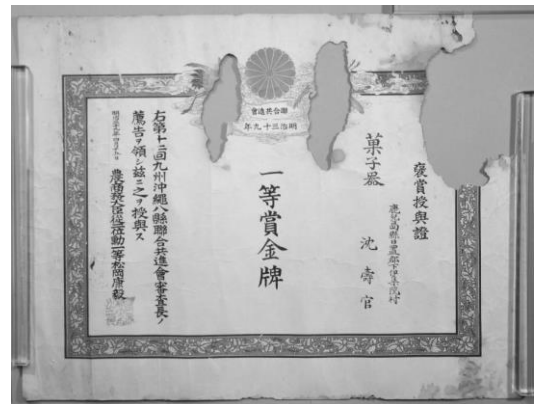 聯合共進會
明治三十九年
褒賞授與證
鹿兒島縣日置郡下伊集院村
菓子器 沈壽官
一等賞金牌
右第十二回九州沖繩八縣聯合共進會審査長ノ
薦告ヲ領シ茲ニ之ヲ授與ス
明治三十九年四月
農商務大臣從二位勳一等松岡康毅